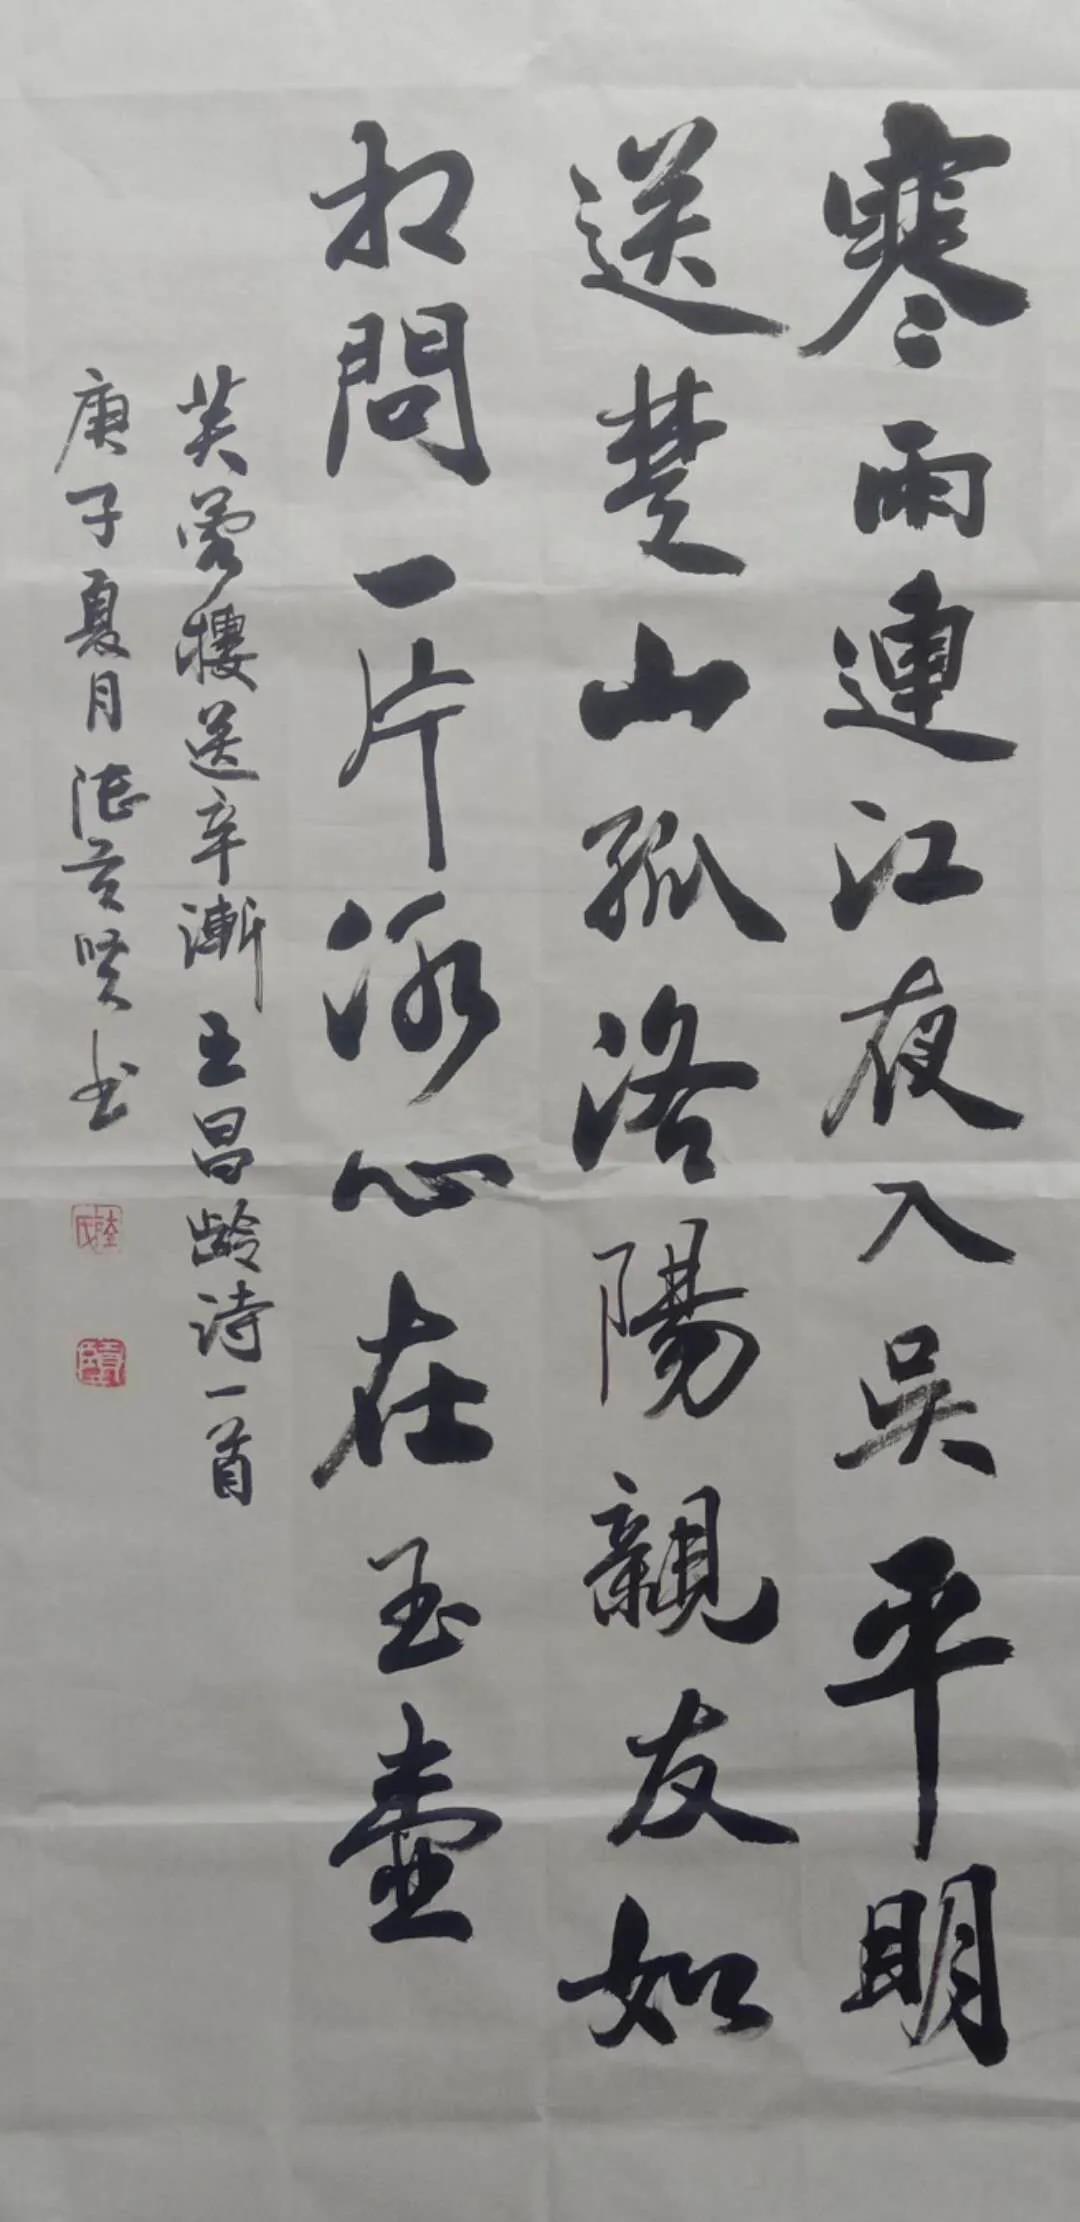 寒雨連江夜入吳平明
送楚山孤洛陽親友如
相問一片冰心在玉壺
芙蓉樓送辛漸 王昌齡詩一首
庚子夏月 賢書